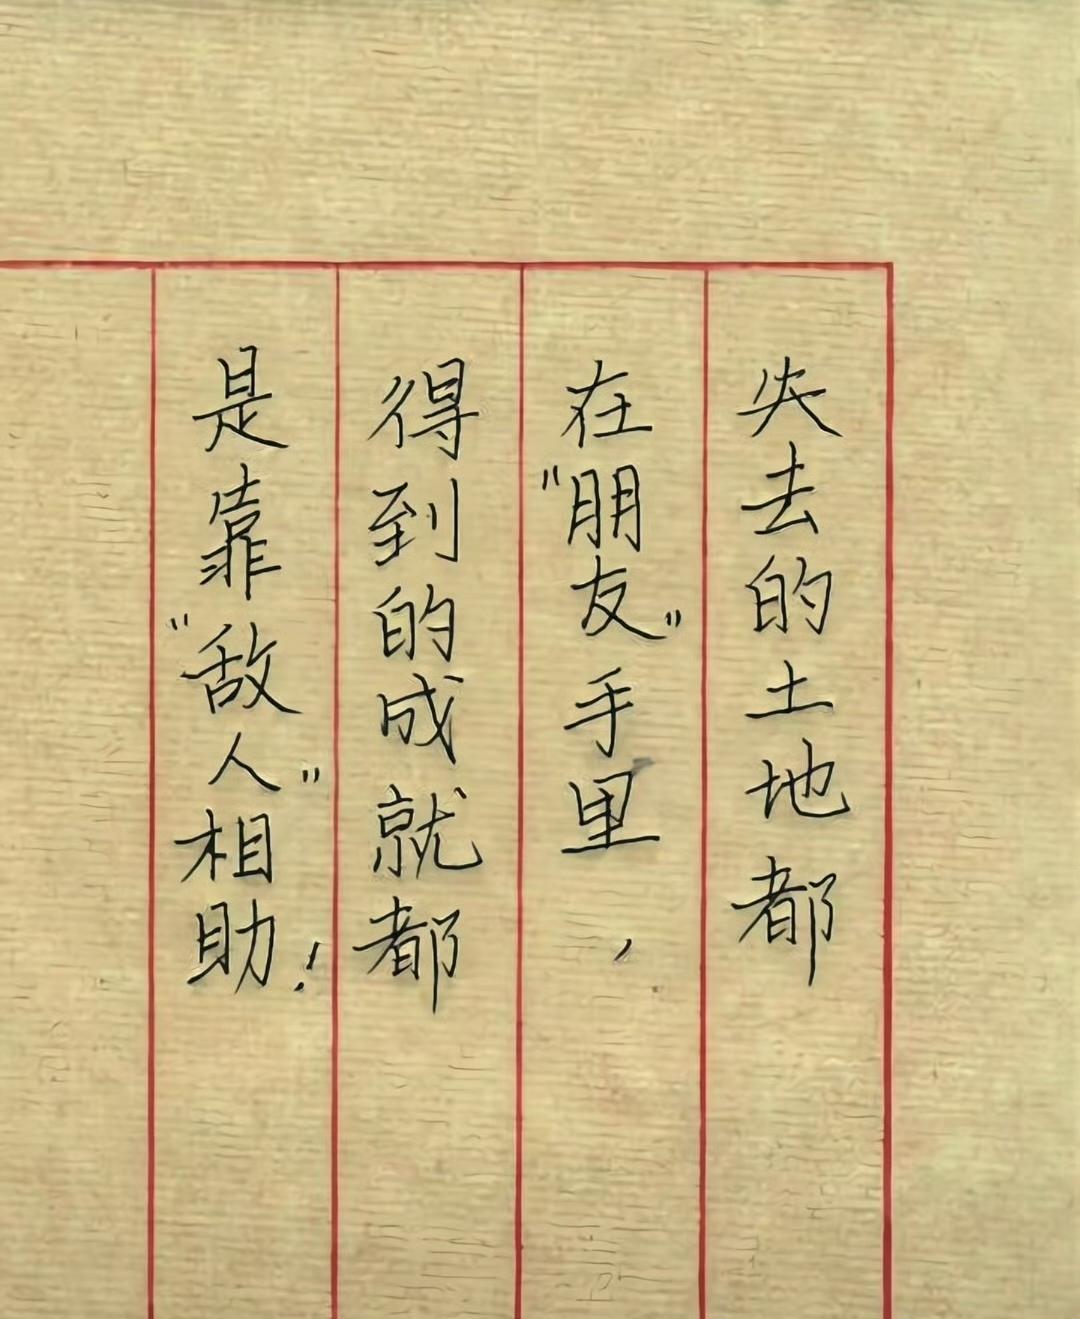 失去的土地都
在"朋友"手里，
得到的成就都
是靠"敌人"相助！